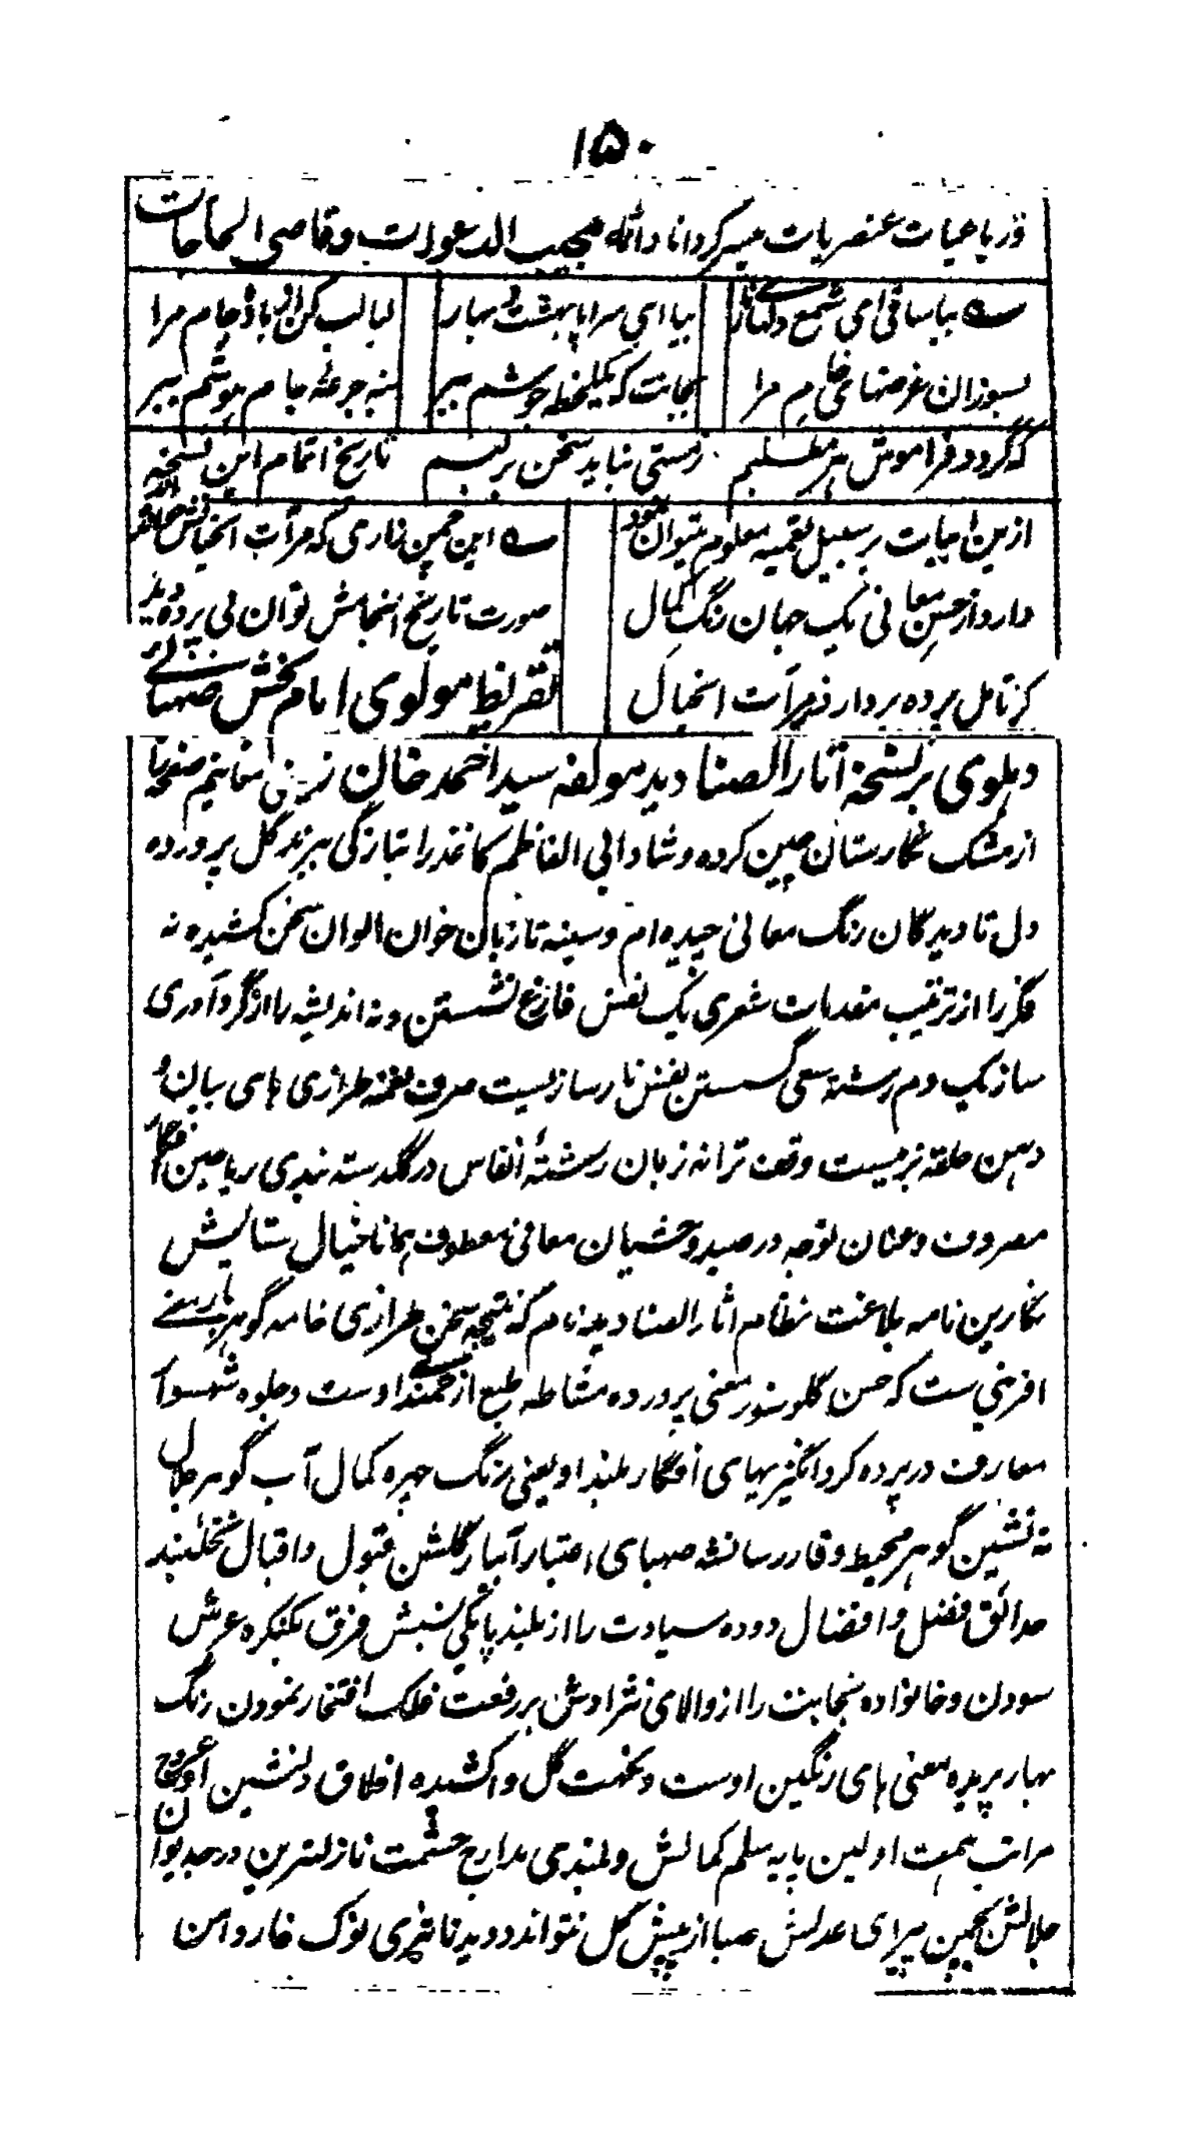 ۱۵۰
و رباعیات عنصریات میسر گرداناد انه مجیب الدعوات و قاضی الحاجات
بیا ساقی ای شمع دلهای بیا ای سراپا بهشت و بهار لبالب کن از باده جام مرا
بسوزان غرضهای خام مرا بجانت که یکلحظه جوشم ببر بنه جرعه جام هوشم ببر
که گردد فراموش هر مطلبم زمستی نیاید سخن بر لبم تاریخ اتمام این نسخه
ازین ابیات بر سبیل تعمیه معلوم میتوان نمود این چمن زاری که مرآت الخیالش
دارد از حسن معانی یک جهان رنگ کمال صورت تاریخ انجامش توان بی پرده دید
گر تامل پرده بردارد ز مرآت الخیال تقریظ مولوی امام بخش صهبائی
دهلوی بر نسخه آثار الصنادید مولفه سید احمد خان معانیم صفحه را
از مشک نگارستان چین کرده و شادابی الفاظم کاغذ را بتازگی برتر گل پرورده
دل تا دیدگان رنگ معانی چیده ام و سینه تا زبان خوان الوان سخن کشیده نه
فکر را از ترتیب مقدمات شعری یک نفس فارغ نشستن و نه اندیشه را از گرد آوری
ساز یک دم رشته سعی گسستن نفس نارسا زلیست صرف نغمه طرازی های بیان و
دهن حلقه بزمیست وقف ترانه زبان رشتهٔ انفاس در گلدسته بندی ریاحین افکار
مصروف و عنان توجه در صید وحشیان معانی معطوف همانا خیال ستایش
نگارین نامه بلاغت نظام اثار الصنادید نام که نتیجه سخن طرازی خامه گوهر
افرینی ست که حسن گلوسوز معنی پرورده مشاطه طبع ارجمند اوست و جلوه شهسوار
معارف در پرده گرد انگیزیهای افکار بلند او یعنی رنگ چهره کمال آب گوهر جلال
ته نشین گوهر محیط وقار رسا نشه صهبای اعتبار آبیار گلشن قبول و اقبال نخلبند
حدائق فضل و افضال دوده سیادت را از بلند پایگی نسبش فرق بکنگره عرش
سودن و خانواده نجابت را از والای نژادش بر رفعت فلک افتخار نمودن رنگ
بهار پریده معنی های رنگین اوست و نکهت گل واکشیده اخلاق دلنشین او عروج
مراتب همت اولین پایه سلم کمالش و بلندی مدارج حشمت نازلترین درجه ایوان
جلالش بچمن پیرای عدلش صبا از پیش گل نتواند دوید تا تیزی نوک خار دامن